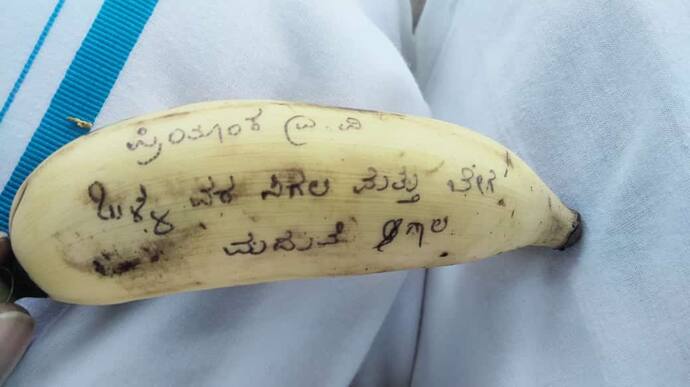 ಪ್ರಿಯಾಂಕ ಡಿ.ವಿ
ಒಳ್ಳೆ ವರ ಸಿಗಲಿ ಮತ್ತು ಬೇಗ
ಮದುವೆ ಆಗಲಿ